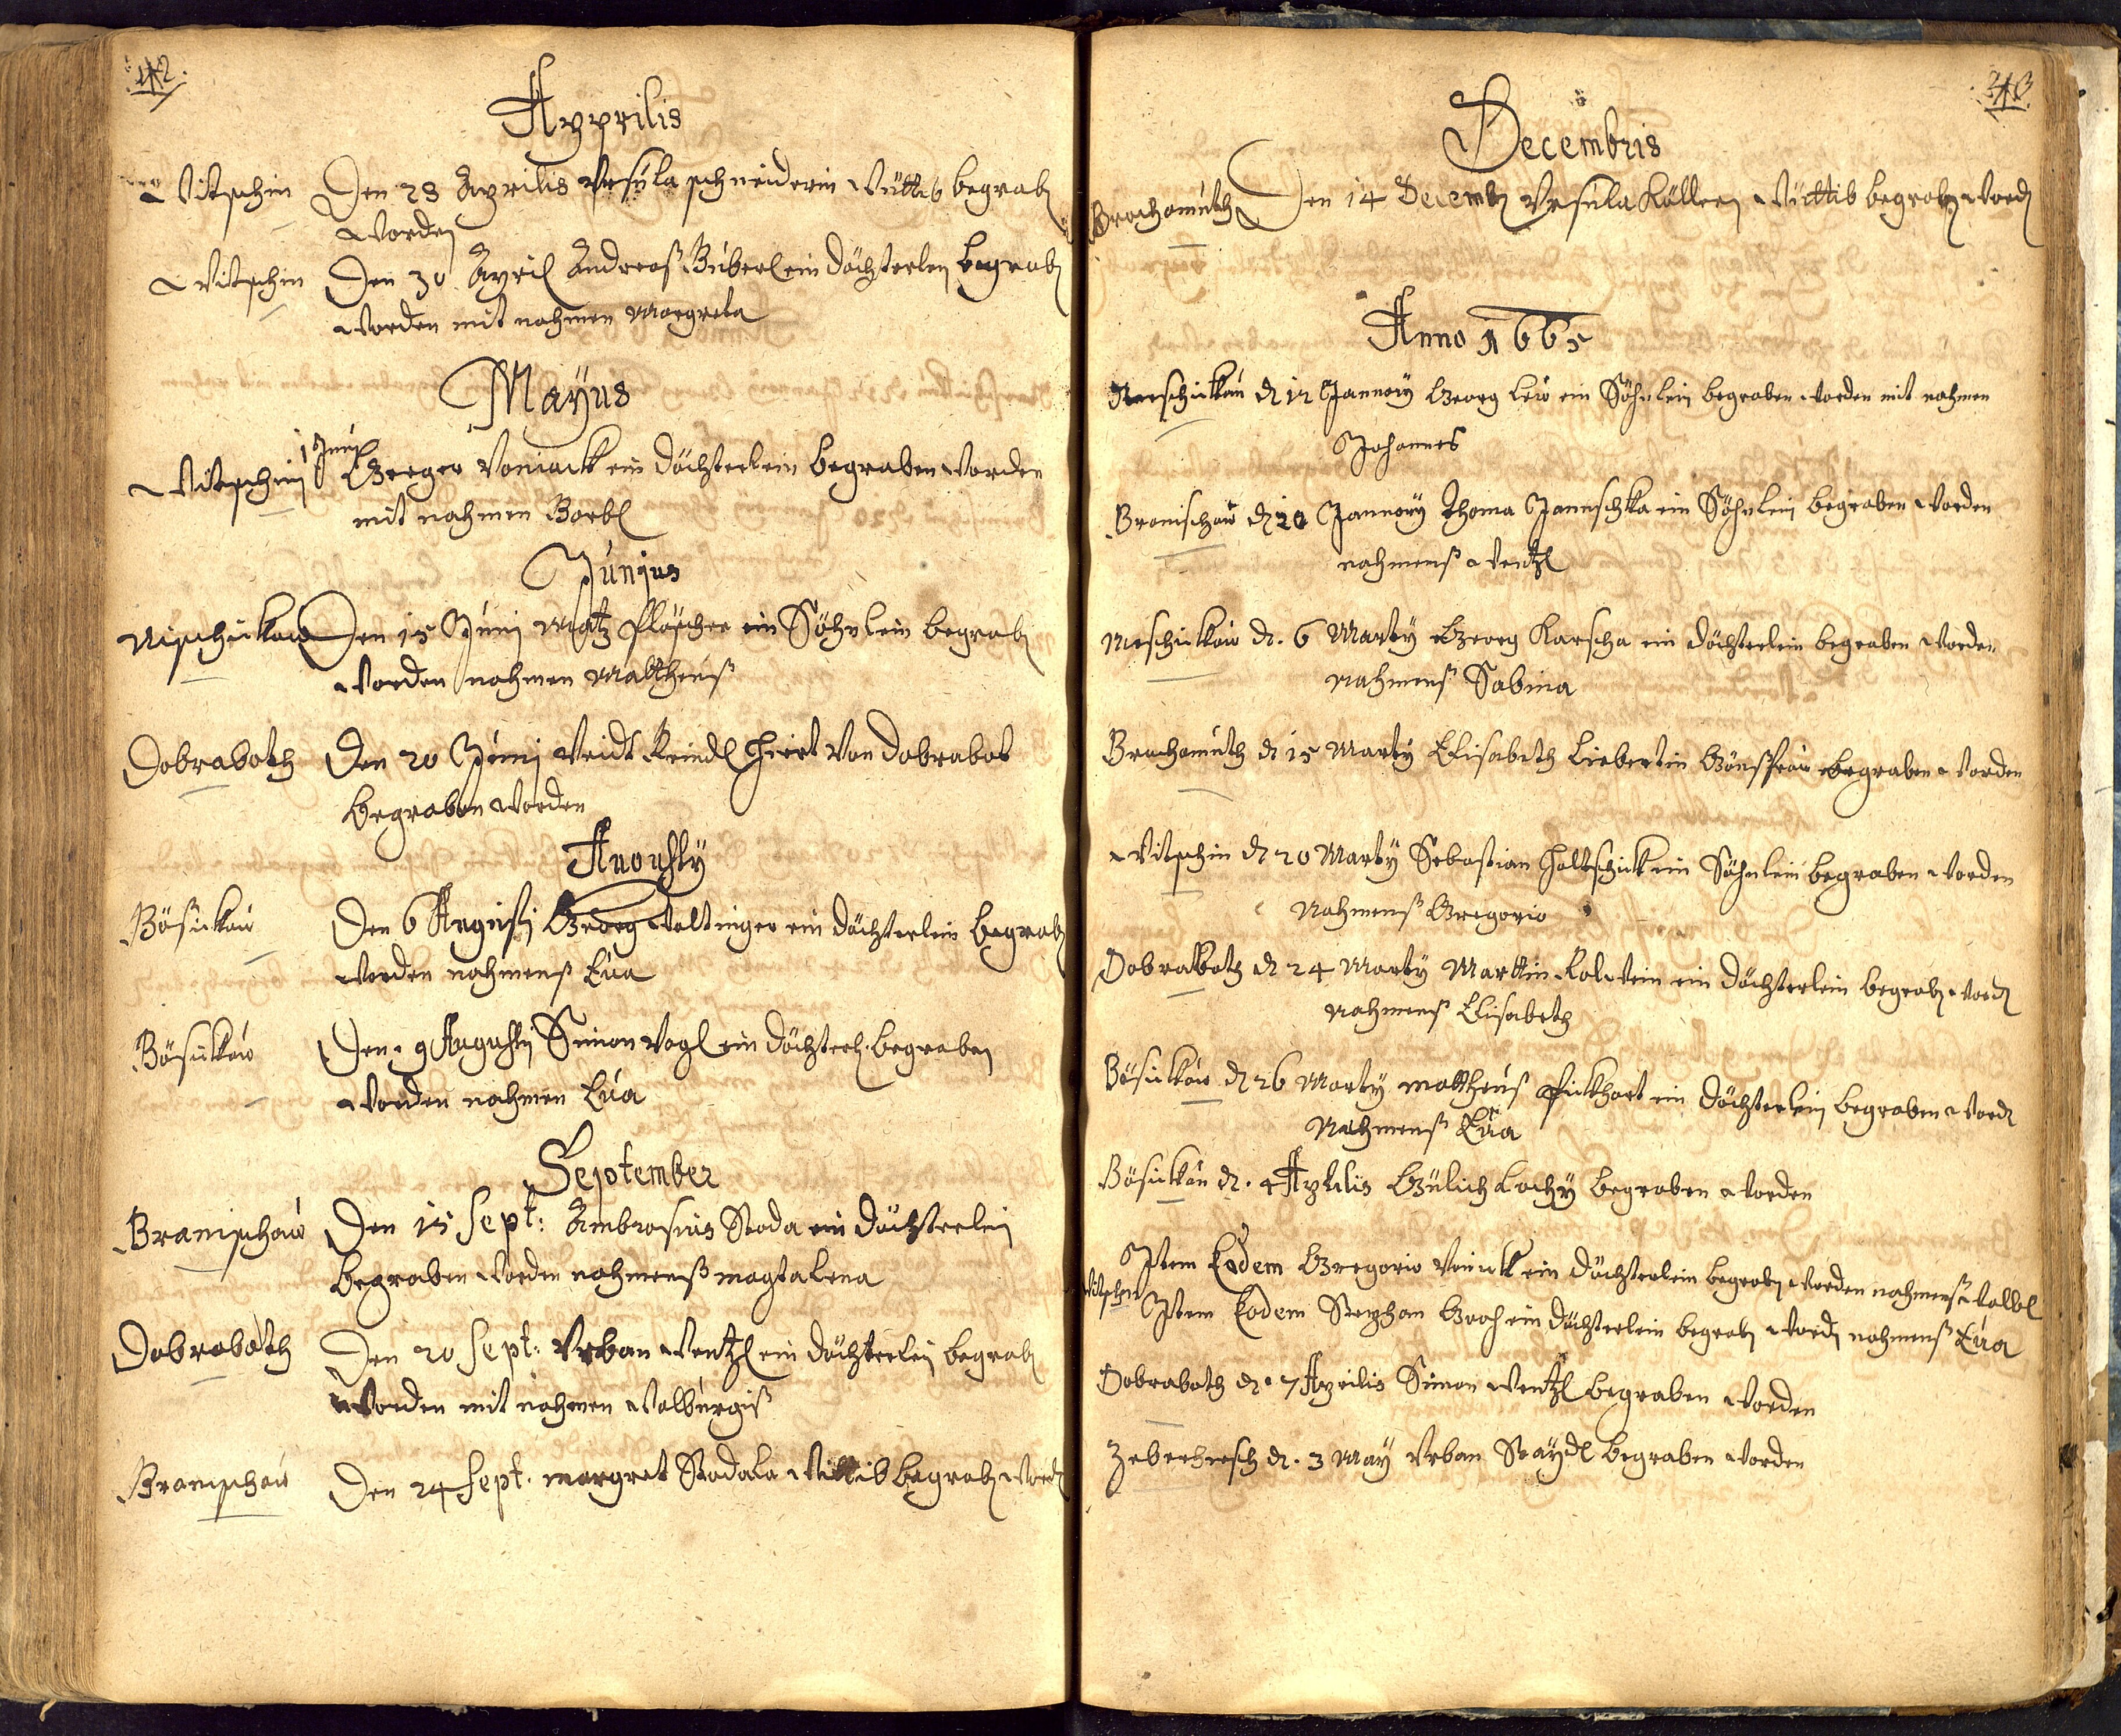 Apprilis
Witschin Den 23 Aprilis Vrsula schneiderin Wüttib begrab
Worden
Witschin Den 30 April Andreaß Büberl ein döchterlen begrab
Worden mit nahmen Margreta
Mayus
Witschin 1 Juni Geerger Voniackh ein döchterlein begraben Worden
mit nahmen Barbl
Junius
Nischickau Den 15 Juni Matz flöscher ein Söhnlein begrab
Worden nahmen Mattheuß
Dobraboth Den 20 Juni Veidt Reindl Hiert Von dobrabot
begraben Worden
Augusty
Bösickau Den 6 Augusti Georg Waltinger ein döchterlein begrab
Worden nahmenß Eua
Bösickau Den 9 Augusti Simon Vogl ein döchterl begraben
Worden nahmen Eua
September
Branischau Den 15 Sept: Ambrosius Stoda ein döchterlein
begraben Worden nahmenß magtalena
Dobraboth Den 20 Sept: Vrban Wentzl ein döchterlein begrab
Worden mit nahmen Walburgiß
Branischau Den 24 Sept. margret Stodala Wittib begrab Word
Decembris
Brochomuth Den 14 Decemb Vrsula Wüttib begrab Word
Anno 1665
Nerschickau d 12 Jannary Georg Leü ein Söhnlein begraben Worden mit nahmen
Johannes
Branischau d 20 Jannary Thoma Jannschka ein Söhnlein begraben Worden
nahmenß Wentzl
Neschickau d. 6 Marty Georg Karscha ein döchterlein begraben Worden
Nahmenß Sabina
Brochomuth d 15 Marty Elisabeth Liebertin begraben Worden
Witschin d 20 Marty Sebastian Holtschick ein Söhnlein begraben Worden
Nahmenß Gregorio
Dobraboth d 24 Marty Marttin ein döchterlein begrab Word
Nahmenß Elisabeth
Bösickau d 26 Marty mattheuß Pickhart ein döchterlein begraben Word
Nahmenß Eua
Bösickau d. 4 Aprilis Lochy begraben Worden
Item Eodem Gregorio Vonickh ein döchterlein begrab Worden nahmenß
Witschin Item Eodem Stephan Groß ein döchterlein begrab Word nahmenß Eua
Dobraboth d. 7 Aprilis Simon Wentzl begraben Worden
Zeberhiesch d. 3 May Vrban Staydl begraben Worden